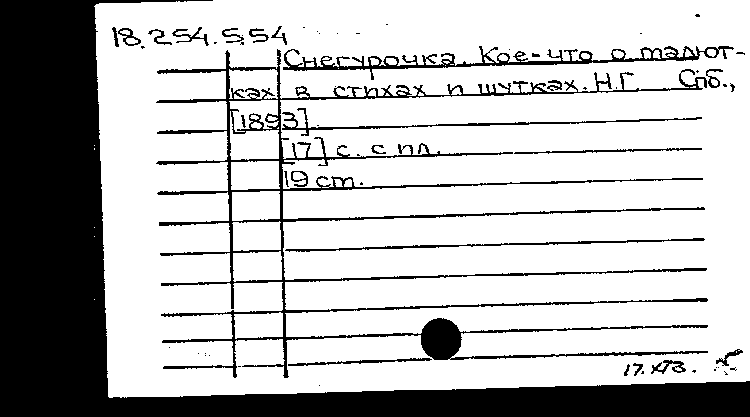 18.254.5.54
Снегурочка. Кое-что о малют-
ках в стихах и шутках. Н.Г. Спб.,
[1893].
[17] с. с ил.
19 cm.